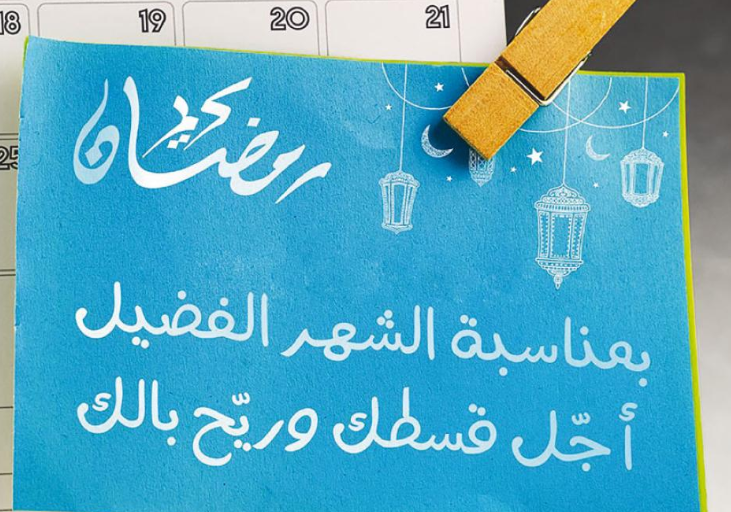 18 19 20 21
25
رمضان
بمناسبة الشهر الفضيل
أجّل قسطك وريّح بالك